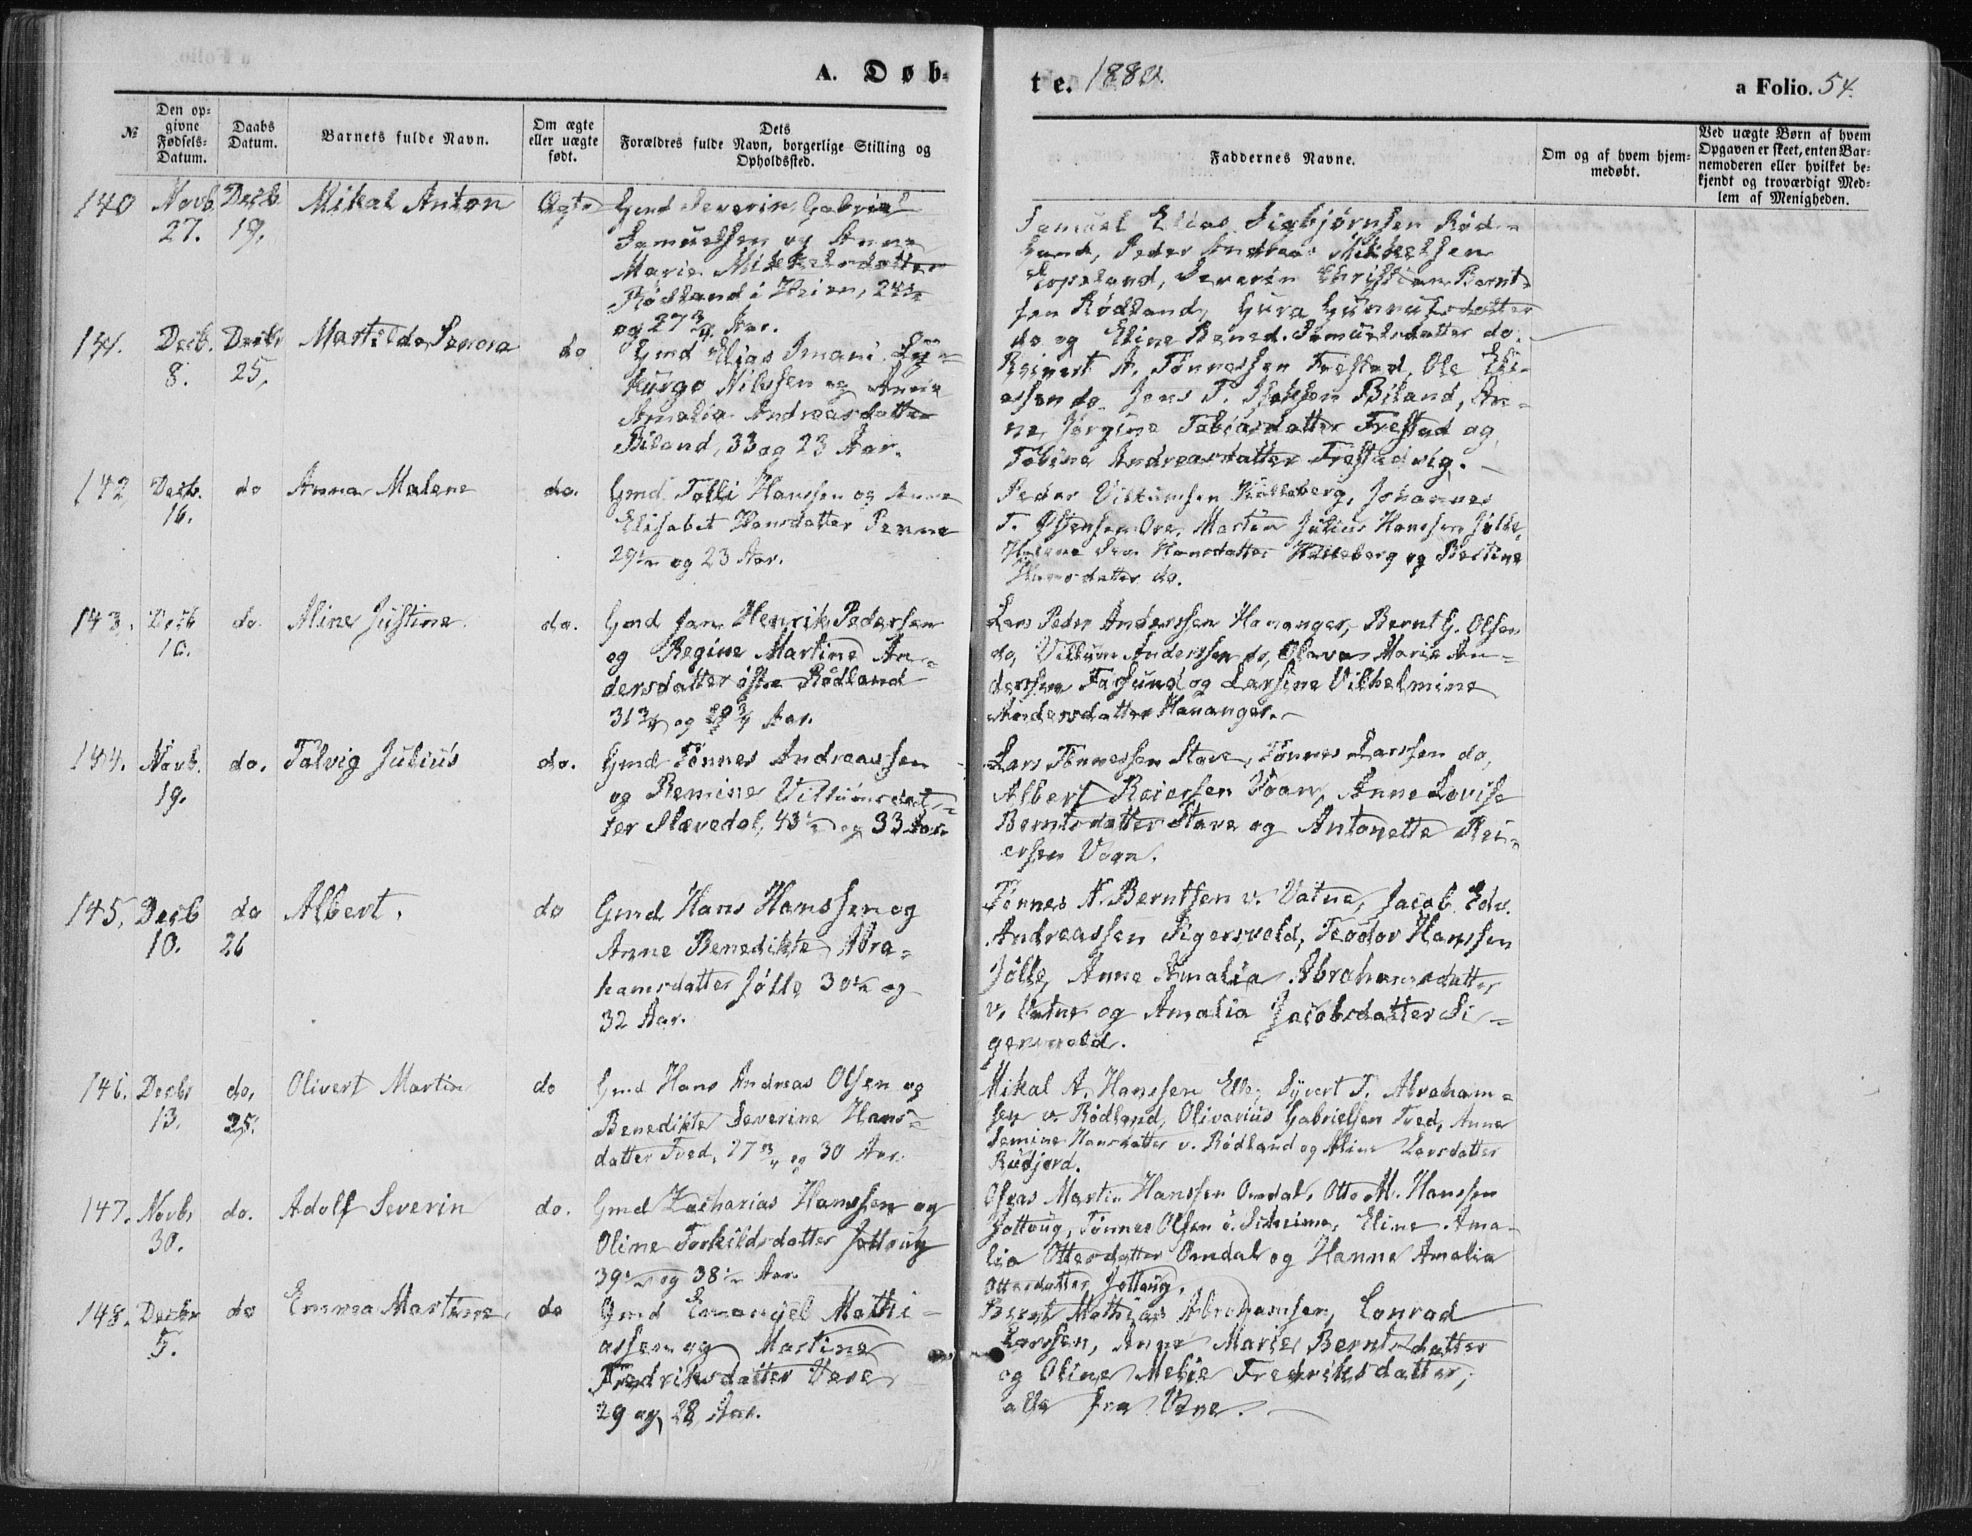 A. Døb-
te. 1880.
a Folio. 54.
№
Den op-
givne
Fødsels-
Datum.
Daabs
Datum.
Barnets fulde Navn.
Om ægte
eller uægte
født.
Dets
Forældres fulde Navn, borgerlige Stilling og
Opholdssted.
Faddernes Navne.
Om og af hvem hjem-
medøbt.
Ved uægte Børn af hvem
Opgaven er skeet, enten Bar-
nemoderen eller hvilket be-
kjendt og troværdigt Med-
lem af Menigheden.
140
Novb.
27.
Decb
19.
Mikal Anton
Ægte
Gmd Severin Gabriel
Samuelsen og Anne
Marie Mikkelsdatter
Rødland i Heien, 24½
og 27 3/4 Aar.
Samuel Elias Sigbjørnsen Rød-
land, Peder Andreas Mikkelsen
Topeland, Severin Christian Bernt-
sen Rødland, Gura Gunnufsdatter
do og Eline Bened. Samuelsdatter do.
141.
Decb.
8.
Decbr
25.
Martilde Senora
do
Gmd Elias Imani Ly-
kurgo Nilssen og Anne
Amalia Andreasdatter
Biland, 33 og 23 Aar.
Reinert A. Tønnessen Frestad, Ole Eli-
assen do. Jens T. Biland, An-
ne Jørgine Tobiasdatter Frestad og
Tobine Andreasdatter Frestadvig.
142
Decb.
16.
do
Anna Malene
do.
Gmd Tolli Hanssen og Anne
Elisabet Hansdatter Penne
29½ og 23 Aar.
Peder Villumsen Kalleberg, Johannes
T. Østensen Ore, Martin Julius Hanssen Jølle,
Hansdatter Kalleberg og Bertine
Hansdatter do.
143.
Decb
10.
do.
Aline Justine.
do.
Gmd Jan Henrik Pedersen
og Regine Martine An-
dersdatter østre Rødland
31 3/4 og 29 3/4 Aar.
Lars Peder Anderssen Hananger, Bernt G. Olsen
do, Villum Anderssen do, Olava Marie An-
derssen Farsund og Larsine Vilhelmine
Andersdatter Hananger.
144.
Novb.
19.
do.
Talvig Julius
do.
Gmd Tønnes Andreassen
og Remine Villumsdat-
ter Slævedal, 43½ og 33 Aar.
Lars Tønnessen Stave, Tønnes Larssen do,
Albert Reiersen Vaan, Anne Lovise
Berntsdatter Stave og Antonette Rei-
ersen Vaan.
145.
Decb
10.
do
26
Albert.
do
Gmd Hans Hanssen og
Anne Benedikte Abra-
hamsdatter Jølle 30½ og
32 Aar.
Tønnes A. Berntsen v. Vatne, Jacob Edv.
Andreassen Sigersvold, Teodor Hanssen
Jølle, Anne Amalia Abrahamsdatter
v. Vatne og Amalia Jacobsdatter Si-
gersvold.
146.
Decbr
13.
do.
25.
Olivert Martin
do
Gmd Hans Andreas Olsen og
Benedikte Severine Hans-
datter Tved, 27 3/4 og 30 Aar.
Mikal A. Hanssen Elle, Syvert T. Abraham-
sen v. Rødland, Olivarius Gabrielsen Tved, Anne
Semine Hansdatter v. Rødland og Aline Larsdatter
Rudjord.
147.
Novbr
30.
do.
Adolf Severin
do.
Gmd Zacharias Hanssen og
Oline Torkildsdatter Jøllaug
39½ og 38½ Aar.
Martin Hanssen Omdal, Otto M. Hanssen
Jøllaug, Tønnes Olsen Eline Ama-
lia Ottersdatter Omdal og Hanne Amalia
Ottersdatter Jøllaug.
148.
Decbr
5.
do
Emma Martine
do
Gmd Emanuel Mathi-
assen og Martine
Fredriksdatter Vere
29 og 28 Aar.
Bernt Mathias Abrahamsen, Conrad
Larssen, Anne Marie Berntsdatter
og Oline Melie Fredriksdatter,
alle fra Vere.